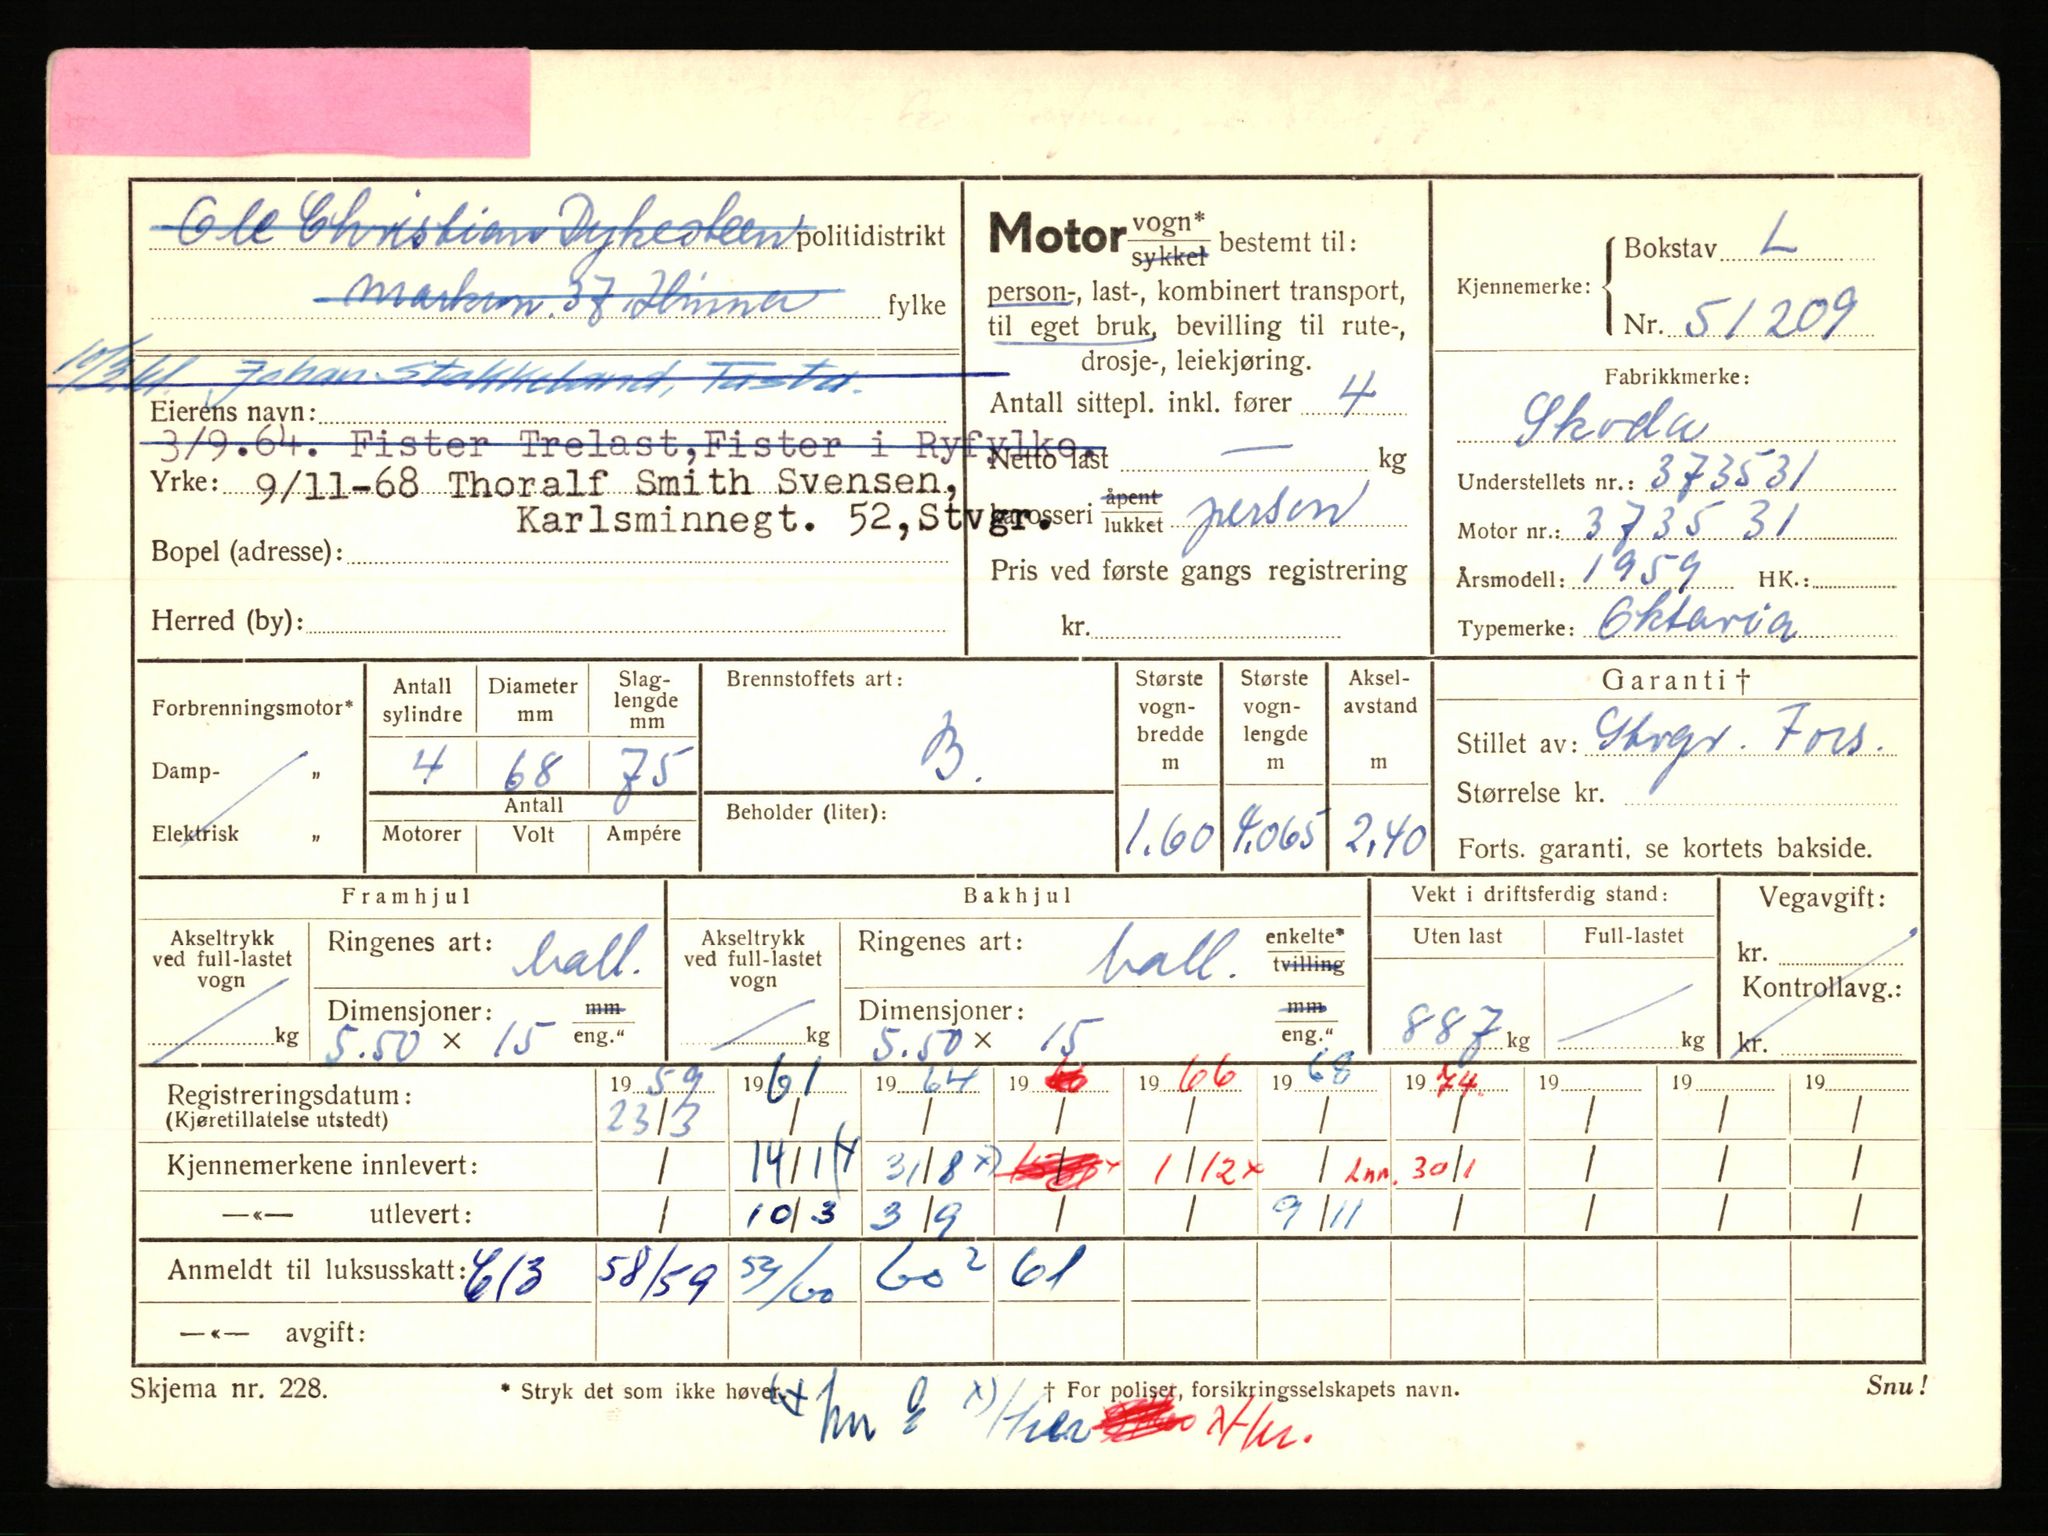 Ole Christian Dykesteen politidistrikt
Markvn. 37 Hinna fylke
10/3.61. Johan Stokkeland, Tasta.
Eierens navn:
3/9.64. Fister Trelast, Fister i Ryfylke.
Yrke: 9/11-68 Thoralf Smith Svensen,
Karlsminnegt. 52, Stvgr.
Bopel (adresse):
Herred (by):
Motor vogn* sykkel bestemt til:
person-, last-, kombinert transport,
til eget bruk, bevilling til rute-,
drosje-, leiekjøring.
Antall sittepl. inkl. fører 4
Netto last — kg
karosseri åpent lukket person
Pris ved første gangs registrering
kr.
Kjennemerke: Bokstav L
Nr. 51209
Fabrikkmerke:
Skoda
Understellets nr.: 373531
Motor nr.: 373531
Årsmodell: 1959 HK.:
Typemerke: Oktavia
Forbrenningsmotor*
Damp- „
Elektrisk „
Antall sylindre Diameter mm Slag-lengde mm
4 68 75
Antall
Motorer Volt Ampére
Brennstoffets art:
B.
Beholder (liter):
Største vogn-bredde m
1.60
Største vogn-lengde m
4.065
Aksel-avstand m
2,40
Garanti †
Stillet av: Stvgr. Fors.
Størrelse kr.
Forts. garanti, se kortets bakside.
Framhjul
Akseltrykk ved full-lastet vogn
kg
Ringenes art: ball.
Dimensjoner: mm
5.50 × 15 eng."
Bakhjul
Akseltrykk ved full-lastet vogn
kg
Ringenes art: ball. enkelte* tvilling
Dimensjoner: mm
5.50 × 15 eng."
Vekt i driftsferdig stand:
Uten last Full-lastet
887 kg kg
Vegavgift:
kr.
Kontrollavg.:
kr.
Registreringsdatum: 1959 1961 1964 19 1966 1968 1974 19 19 19
(Kjøretillatelse utstedt) 23/3 / / / / / / / / /
Kjennemerkene innlevert: / 14/1 31/8 x) 1/12 x / Inn. 30/1 / / /
—«— utlevert: / 10/3 3/9 / / 9/11 / / / /
Anmeldt til luksusskatt: 58/59 60² 61
—«— avgift:
Skjema nr. 228.
* Stryk det som ikke høver.
† For poliser, forsikringsselskapets navn.
Snu!